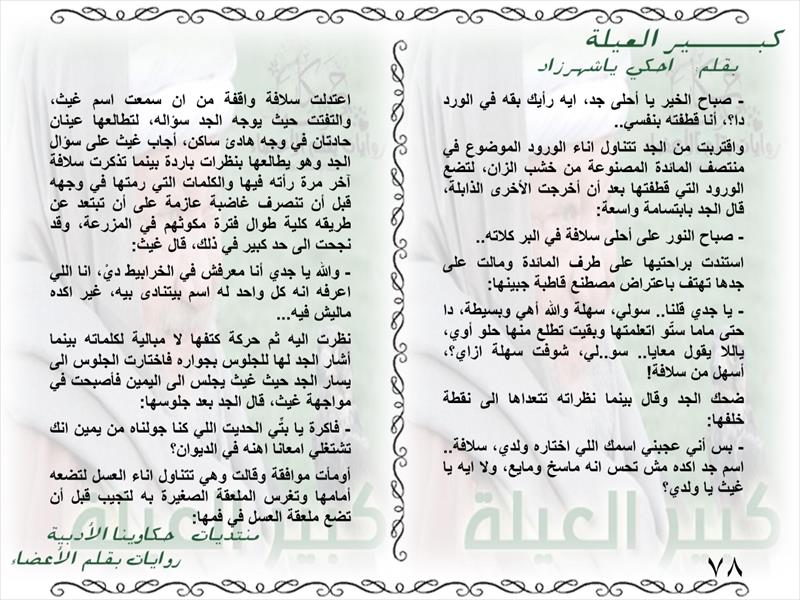 كبـــــــــير العيلة
بقلم احكي ياشهرزاد
- صباح الخير يا أحلى جد، ايه رأيك بقه في الورد
دا؟، أنا قطفته بنفسي..
واقتربت من الجد تتناول اناء الورود الموضوع في
منتصف المائدة المصنوعة من خشب الزان، لتضع
الورود التي قطفتها بعد أن أخرجت الأخرى الذابلة،
قال الجد بابتسامة واسعة:
- صباح النور على أحلى سلافة في البر كلاته..
استندت براحتيها على طرف المائدة ومالت على
جدها تهتف باعتراض مصطنع قاطبة جبينها:
- يا جدي قلنا.. سولي، سهلة والله أهي وبسيطة، دا
حتى ماما ستّو اتعلمتها وبقيت تطلع منها حلو أوي،
ياللا يقول معايا.. سو..لي، شوفت سهلة ازاي؟،
أسهل من سلافة!
ضحك الجد وقال بينما نظراته تتعداها الى نقطة
خلفها:
- بس أني عجبني اسمك اللي اختاره ولدي، سلافة..
اسم جد اكده مش تحس انه ماسخ ومايع، ولا ايه يا
غيث يا ولدي؟
اعتدلت سلافة واقفة من ان سمعت اسم غيث،
والتفتت حيث يوجه الجد سؤاله، لتطالعها عينان
حادتان في وجه هادئ ساكن، أجاب غيث على سؤال
الجد وهو يطالعها بنظرات باردة بينما تذكرت سلافة
آخر مرة رأته فيها والكلمات التي رمتها في وجهه
قبل أن تنصرف غاضبة عازمة على أن تبتعد عن
طريقه كلية طوال فترة مكوثهم في المزرعة، وقد
نجحت الى حد كبير في ذلك، قال غيث:
- والله يا جدي أنا معرفش في الخرابيط ديْ، انا اللي
اعرفه انه كل واحد له اسم بيتنادى بيه، غير اكده
ماليش فيه...
نظرت اليه ثم حركة كتفها لا مبالية لكلماته بينما
أشار الجد لها للجلوس بجواره فاختارت الجلوس الى
يسار الجد حيث غيث يجلس الى اليمين فأصبحت في
مواجهة غيث، قال الجد بعد جلوسها:
- فاكرة يا بتّي الحديت اللي كنا جولناه من يمين انك
تشتغلي امعانا اهنه في الديوان؟
أومأت موافقة وقالت وهي تتناول اناء العسل لتضعه
أمامها وتغرس الملعقة الصغيرة به لتجيب قبل أن
تضع ملعقة العسل في فمها:
كبير العيلة
كبير العيلة
منتديات حكاوينا الأدبية
روايات بقلم الأعضاء
٧٨